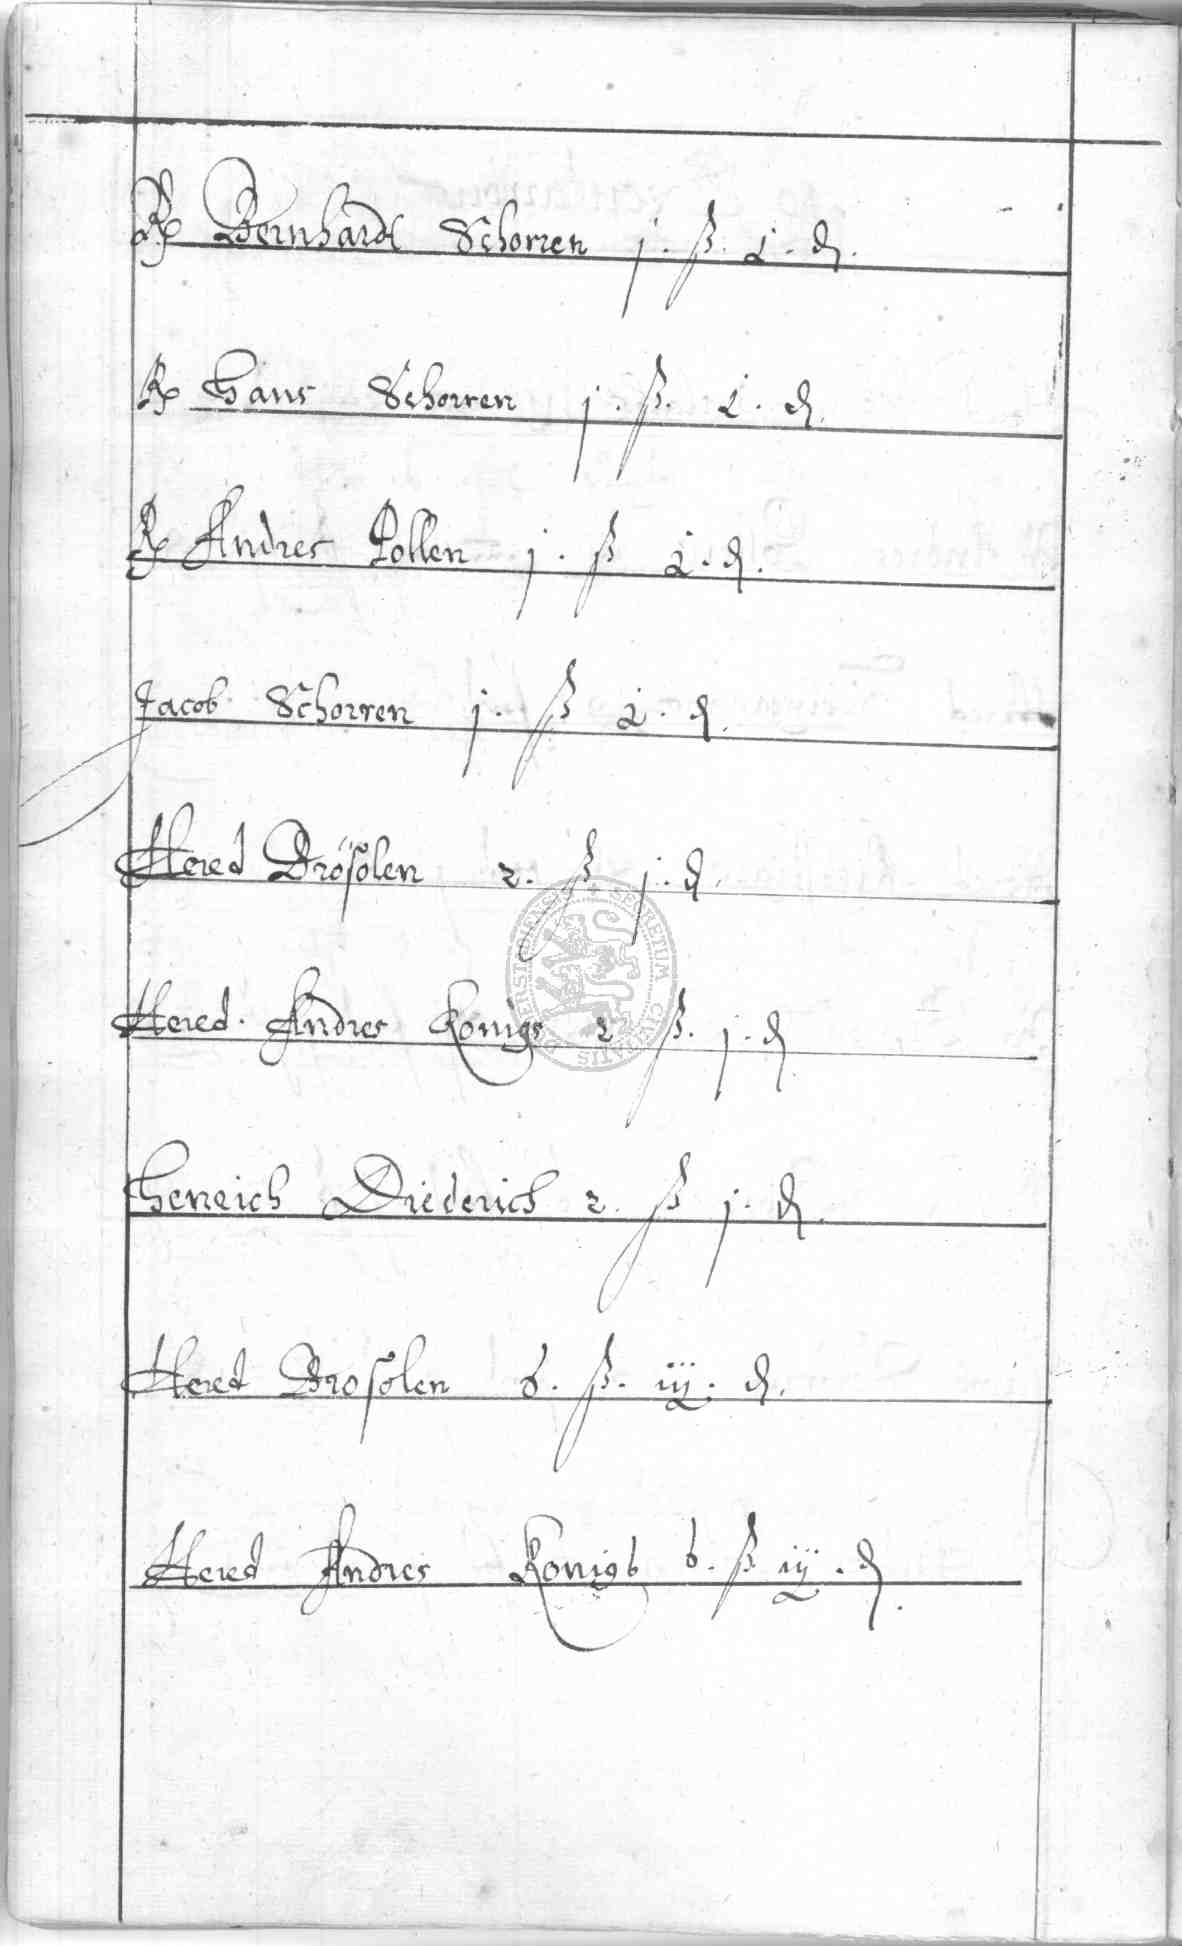 Rp Bernhardt Schorren j. ß. 2. ₰.
Rp Hans Schorren j. ß. 2. ₰.
Rp Andres Pollen j. ß 2. ₰.
Jacob Schorren j. ß 2. ₰.
Hered Drösolen 2. ß j. ₰.
Hered. Andres Konigs 2 ß. j. ₰
Henrich Diederich 2. ß j. ₰.
Hered Drosolen 6. ß. iij. ₰.
Hered Andres Konigs 6. ß iij. ₰.
SECRETUM CIVITATIS